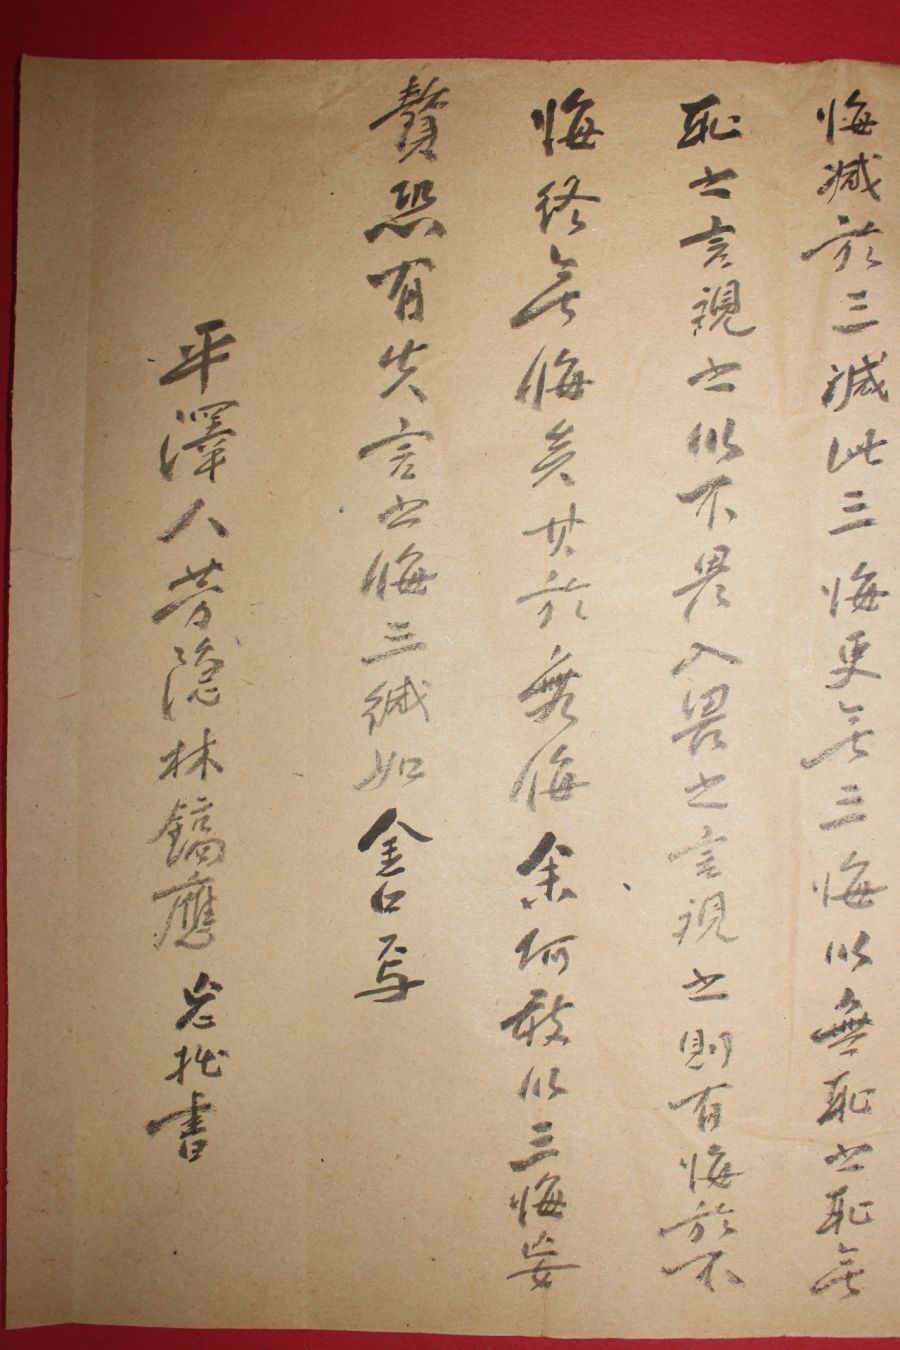 悔減於三減此三悔更無三悔以無恥之恥無
恥之言視之以不畏入畏之言視之則有悔於不
悔終無悔矣其於無悔余何敢以三悔妄
贅恐有失言之悔三緘如金口焉
平澤人芳隱林鎬應忘拙書